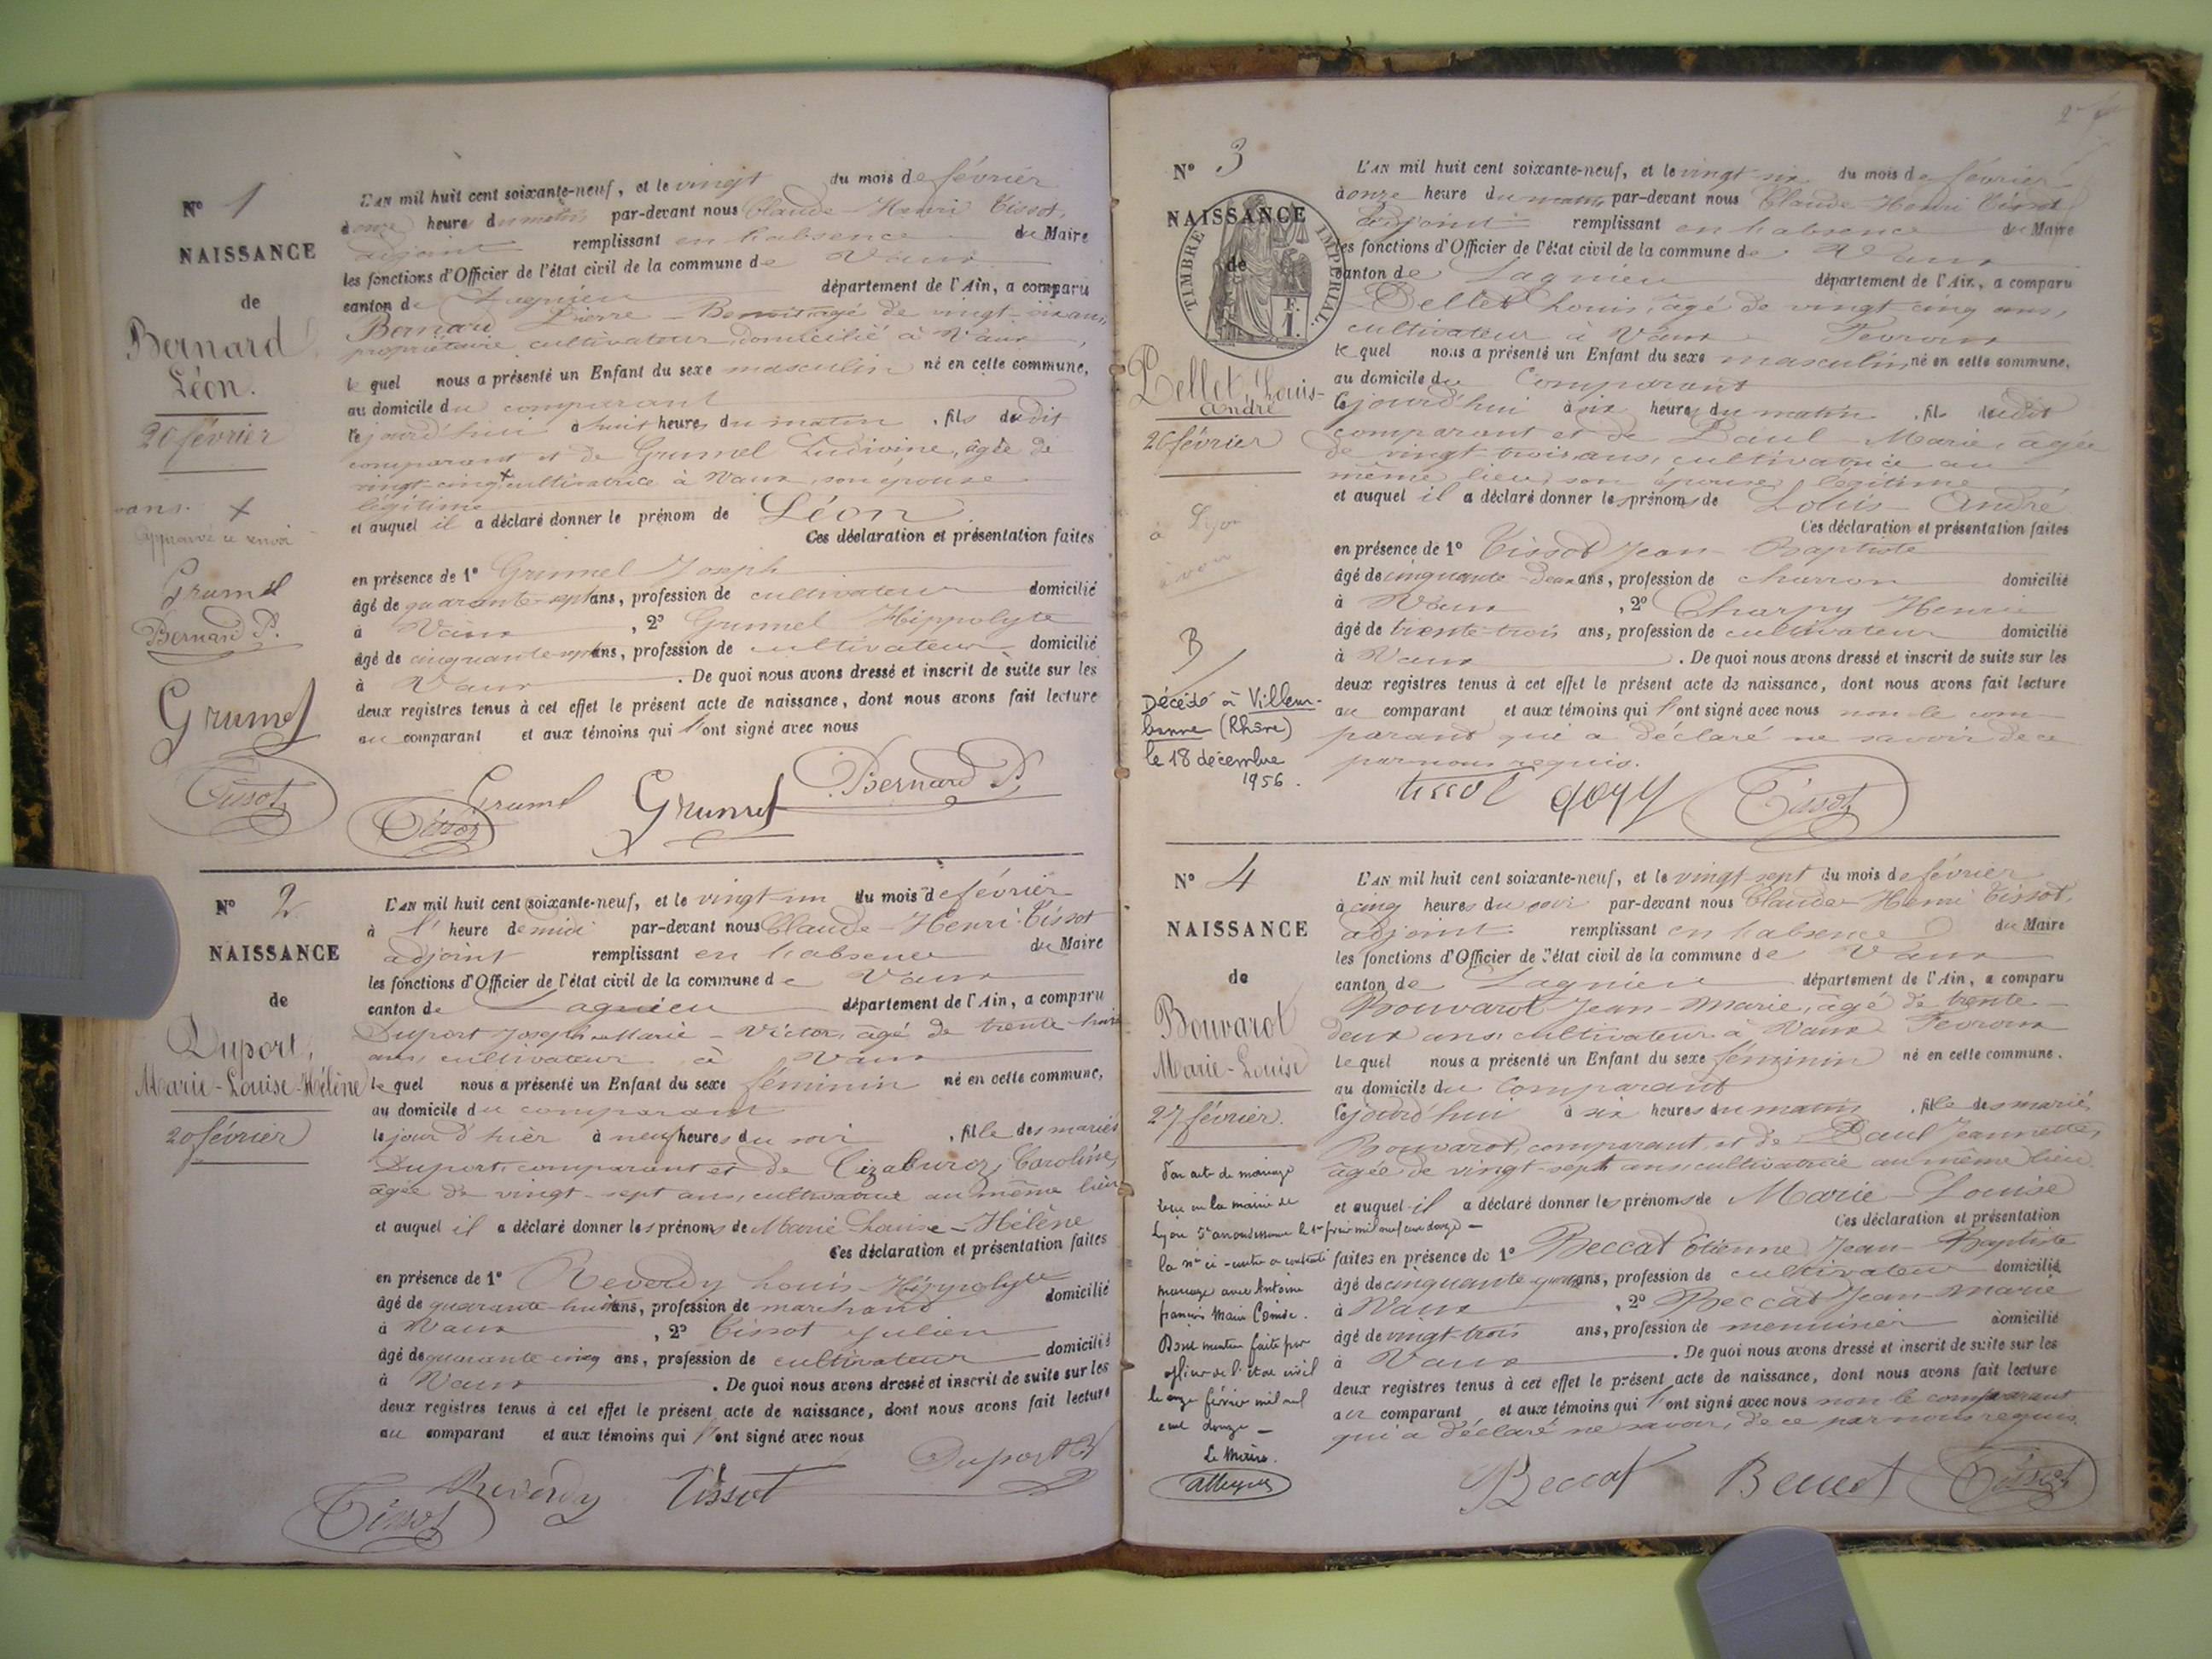 N° 1
NAISSANCE
de
Bernard
Léon.
20 février
ans. X
Approuvé le renvoi
Grumel
Bernard P.
Grumel
Tissot
L'AN mil huit cent soixante-neuf, et le vingt du mois de février
à onze heure du matin par-devant nous Claude-Henri Tissot,
adjoint remplissant en l'absence du Maire
les fonctions d'Officier de l'état civil de la commune de Vaux
canton de Lagnieu département de l'Ain, a comparu
Bernard Pierre-Benoit âgé de vingt-six ans,
propriétaire cultivateur, domicilié à Vaux,
lequel nous a présenté un Enfant du sexe masculin né en cette commune,
au domicile du comparant
cejourd'hui à huit heures du matin, fils dudit
comparant et de Grumel Ludivine, âgée de
vingt-cinq X cultivatrice à Vaux, son épouse
légitime
et auquel il a déclaré donner le prénom de Léon
Ces déclaration et présentation faites
en présence de 1° Grumel Joseph
âgé de quarante-sept ans, profession de cultivateur domicilié
à Vaux, 2° Grumel Hippolyte
âgé de cinquante-sept ans, profession de cultivateur domicilié
à Vaux. De quoi nous avons dressé et inscrit de suite sur les
deux registres tenus à cet effet le présent acte de naissance, dont nous avons fait lecture
au comparant et aux témoins qui l'ont signé avec nous
Grumel Grumel Bernard P.
Tissot
N° 2
NAISSANCE
de
Duport,
Marie-Louise-Hélène
20 février
L'AN mil huit cent soixante-neuf, et le vingt-un du mois de février
à l'heure de midi par-devant nous Claude-Henri Tissot
adjoint remplissant en l'absence du Maire
les fonctions d'Officier de l'état civil de la commune de Vaux
canton de Lagnieu département de l'Ain, a comparu
Duport Joseph-Marie-Victor, âgé de trente-huit
ans, cultivateur à Vaux
lequel nous a présenté un Enfant du sexe féminin né en cette commune,
au domicile du comparant
le jour d'hier à neuf heures du soir, fille des mariés
Duport, comparant et de Tizaburoz, Caroline,
âgée de vingt-sept ans, cultivatrice au même lieu
et auquel il a déclaré donner les prénoms de Marie Louise-Hélène
Ces déclaration et présentation faites
en présence de 1° Reverdy Louis-Hippolyte
âgé de quarante-huit ans, profession de marchand domicilié
à Vaux, 2° Tissot Julien
âgé de quarante-cinq ans, profession de cultivateur domicilié
à Vaux. De quoi nous avons dressé et inscrit de suite sur les
deux registres tenus à cet effet le présent acte de naissance, dont nous avons fait lecture
au comparant et aux témoins qui l'ont signé avec nous
Duport
Reverdy Tissot
Tissot
2
N° 3
NAISSANCE
de
TIMBRE IMPÉRIAL
F.
1.
Pellet, Louis-
André
26 février
à Lyon
B
Décédé à Villeur-
banne (Rhône)
le 18 décembre
1956.
L'AN mil huit cent soixante-neuf, et le vingt-six du mois de février
à onze heure du matin, par-devant nous Claude-Henri Tissot
adjoint remplissant en l'absence du Maire
les fonctions d'Officier de l'état civil de la commune de Vaux
canton de Lagnieu département de l'Ain, a comparu
Pellet Louis, âgé de vingt-cinq ans,
cultivateur à Vaux Fevroux
lequel nous a présenté un Enfant du sexe masculin, né en cette commune,
au domicile du Comparant
cejourd'hui à six heures du matin, fils dudit
comparant et de Paul Marie, âgée
de vingt-trois ans, cultivatrice au
même lieu, son épouse légitime
et auquel il a déclaré donner les prénoms de Louis-André
Ces déclaration et présentation faites
en présence de 1° Tissot Jean-Baptiste
âgé de cinquante-deux ans, profession de charron domicilié
à Vaux, 2° Charpy Henri
âgé de trente-trois ans, profession de cultivateur domicilié
à Vaux. De quoi nous avons dressé et inscrit de suite sur les
deux registres tenus à cet effet le présent acte de naissance, dont nous avons fait lecture
au comparant et aux témoins qui l'ont signé avec nous non le com-
parant qui a déclaré ne savoir de ce
par nous requis.
tissot Tissot
N° 4
NAISSANCE
de
Bouvarot
Marie-Louise
27 février.
Par acte de mariage
reçu en la mairie de
Lyon 5e arrondissement le 1er février mil neuf cent douze —
la née ci-contre a contracté
mariage avec Antoine
françois Marie Comte.
Dont mention faite par
officier de l'état civil
le onze février mil neuf
cent douze —
Le Maire.
L'AN mil huit cent soixante-neuf, et le vingt-sept du mois de février
à cinq heures du soir par-devant nous Claude-Henri Tissot,
adjoint remplissant en l'absence du Maire
les fonctions d'Officier de l'état civil de la commune de Vaux
canton de Lagnieu département de l'Ain, a comparu
Bouvarot Jean-Marie, âgé de trente-
deux ans cultivateur à Vaux Fevroux
lequel nous a présenté un Enfant du sexe féminin né en cette commune.
au domicile du Comparant
cejourd'hui à six heures du matin, fille des mariés
Bouvarot, comparant et de Paul Jeannette,
âgée de vingt-sept ans, cultivatrice au même lieu.
et auquel il a déclaré donner les prénoms de Marie-Louise
Ces déclaration et présentation
faites en présence de 1° Beccat Etienne Jean-Baptiste
âgé de cinquante ans, profession de cultivateur domicilié
à Vaux, 2° Beccat Jean-Marie
âgé de vingt-trois ans, profession de menuisier domicilié
à Vaux. De quoi nous avons dressé et inscrit de suite sur les
deux registres tenus à cet effet le présent acte de naissance, dont nous avons fait lecture
au comparant et aux témoins qui l'ont signé avec nous non le comparant
qui a déclaré ne savoir, de ce par nous requis.
Beccat Beccat Tissot